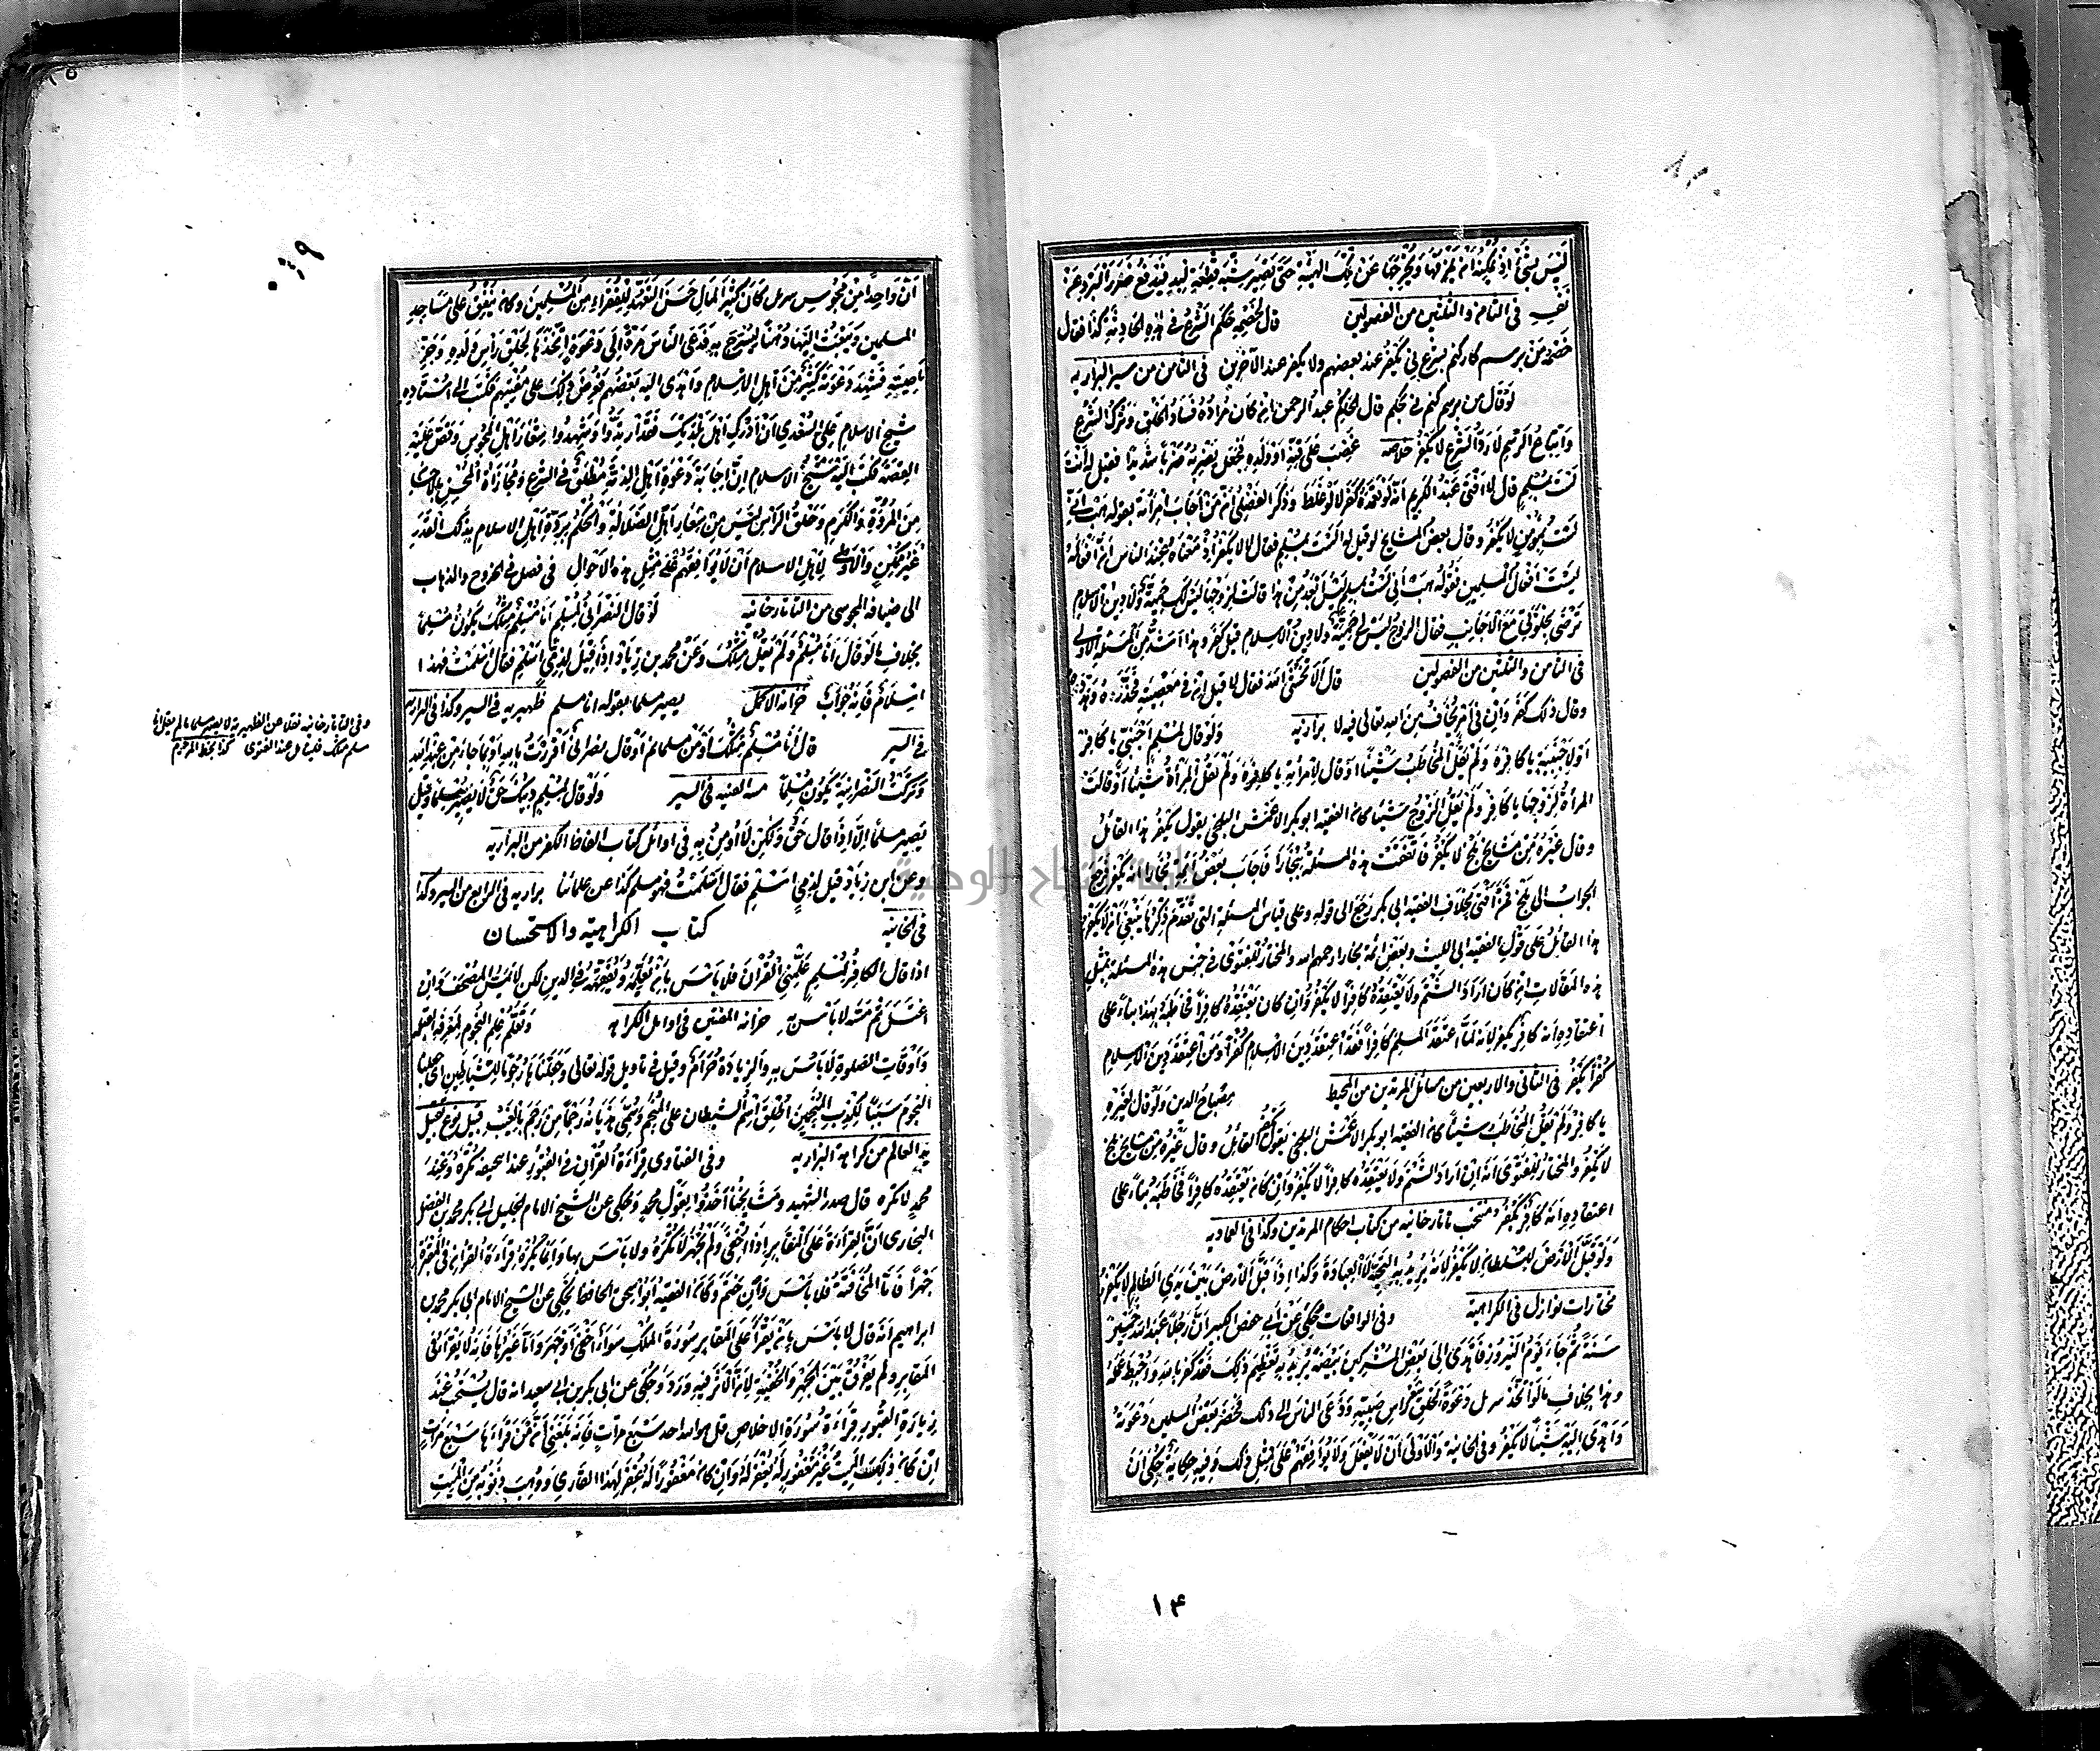 ليس بشئ اذ يمكنه ان يمزقها ويخرجها عن تلك الهيئة حتى تصير شبه قطعة لبد فيندفع ضرر البرد عن
نفسه في الثامن والثلثين من الفصولين قال لخصمه حكم الشرع في هذه الحادثة كذا فقال
خصمه من برسم كار كنم بشرع ني يكفر عند بعضهم ولا يكفر عند الآخرين في الثامن من سير البزازيه
لو قال من برسم كنم ني بحكم قال الحاكم عبد الرحمن ان كان مراده فساد الخلق وترك الشرع
واتباع الرسم لا رد الشرع لا يكفر خلاصه غضب على قنه او ولده فجعل يضربه ضربا شديدا فقيل له الست
لست بمسلم قال لا افتى عبد الكريم انه لو تعمده كفر لا لو غلط وذكر الفضلي انه من اجاب امرأته بقوله هب اني
لست بمؤمن لا يكفر وقال بعض المشايخ لو قيل له الست بمسلم فقال لا لا يكفر اذ معناه عند الناس ان افعاله
ليست افعال المسلمين فقوله هب اني لست بمسلم ابعد من هذا قالت لزوجها ليس لك حمية ولا دين الاسلام
ترضى بخلوتي مع الاجانب فقال الزوج ليس لي حمية ولا دين الاسلام قيل كفر وهذا اشد من المسئلة الاولى
في الثامن والثلثين من الفصولين قال الا تخشى الله فقال لا قيل ان في معصية فحذره
وقال ذلك كفر وان في امر يخاف من الله تعالى فيه لا بزازيه ولو قال لمسلم اجنبي يا كافر
او لاجنبية يا كافرة ولم يقل المخاطب شيئا او قال لامرأته يا كافرة ولم تقل المرأة شيئا او قالت
المرأة لزوجها يا كافر ولم يقل الزوج شيئا كان الفقيه ابو بكر الاعمش البلخي يقول يكفر هذا القائل
وقال غيره من مشايخ بلخ لا يكفر فاتفقت هذه المسئلة ببخارا فاجاب بعض ائمة بخارا انه يكفر فرجع
الجواب الى بلخ فمن افتى بخلاف الفقيه ابي بكر رجع الى قوله وعلى قياس المسئلة التي تقدم ذكرها ينبغي ان لا يكفر
هذا القائل على قول الفقيه ابي الليث وبعض ائمة بخارا رحمهم الله والمختار للفتوى في جنس هذه المسئلة بمثل
هذه المقالات ان كان اراد الشتم ولا يعتقده كافرا لا يكفر وان كان يعتقده كافرا فخاطبه بهذا بناء على
اعتقاده انه كافر يكفر لانه لما اعتقد المسلم كافرا فقد اعتقد دين الاسلام كفرا ومن اعتقد دين الاسلام
كفرا يكفر في الثاني والاربعين من مسائل المرتدين من المحيط مصباح الدين ولو قال لغيره
يا كافر ولم يقل المخاطب شيئا كان الفقيه ابو بكر الاعمش البلخي يقول يكفر القائل وقال غيره من مشايخ بلخ
لا يكفر والمختار للفتوى انه ان اراد الشتم ولا يعتقده كافرا لا يكفر وان كان يعتقده كافرا فخاطبه بناء على
اعتقاده انه كافر يكفر منتخب تاتارخانيه من كتاب احكام المرتدين وكذا في العماديه
ولو قبل الارض للسلطان لا يكفر لانه يريد به التحية لا العبادة وكذا اذا قبل الارض بين يدي الظالم لا يكفر
مختارات نوازل في الكراهية وفي الواقعات حكي عن ابي حفص الكبير ان رجلا عبد الله خمسين
سنة ثم جاء يوم النيروز فاهدى الى بعض المشركين بيضة يريد به تعظيم ذلك فقد كفر بالله واحبط عمله
وهذا بخلاف ما لو اتخذ دعوة لحلق شعر رأس صبيه ودعى الناس الى ذلك فحضر بعض المسلمين دعوته
واهدى اليه شيئا لا يكفر وفي الخانية والاولى ان لا يفعل ولا يوافقهم على مثل ذلك وفيه حكاية حكي ان
١٤
٩
ان واحدا من مجوس سربل كان كثير المال حسن التعهد للفقراء من المسلمين وكان ينفق على مساجد
المسلمين ويبعث اليها دهنا ليسرج به فدعى الناس مرة الى دعوة اتخذها لحلق رأس ولده وجز
ناصيته فشهد دعوته كثير من اهل الاسلام واهدى اليه بعضهم فوقع ذلك على مفتيهم فكتب الى استاده
شيخ الاسلام على السغدي ان ادرك اهل بلدك فقد ارتدوا وشهدوا شعار اهل المجوس وقص عليه
القصة فكتب اليه شيخ الاسلام ان اجابة دعوة اهل الذمة مطلق في الشرع ومجازاة المحسن بالاحسان
من المروة والكرم وحلق الرأس ليس من شعار اهل الضلالة والحكم بردة اهل الاسلام بذلك القدر
غير ممكن والاولى لاهل الاسلام ان لا يوافقهم على مثل هذه الاحوال في فصل في الخروج والذهاب
الى ضيافة المجوسي من التاتارخانيه لو قال النصراني لمسلم انا مسلم مثلك يكون مسلما
بخلاف ما لو قال انا مسلم ولم يقل مثلك وعن محمد بن زياد اذا قيل لذمي اسلم فقال اسلمت فهذا
اسلام فانه جواب خزانة الاكمل يصير مسلما بقوله انا مسلم ظهيريه في السير وكذا في البزازيه
في السير قال انا مسلم مثلك او من مسلمانم او قال نصراني اقررت بالله او بما جاء من عند الله
وتركت النصرانية يكون مسلما منية الفقيه في السير ولو قال لمسلم دينك حق لا يصير مسلما وقيل
يصير مسلما الا اذا قال حق ولكن لا اومن به في اوائل كتاب الفاظ الكفر من البزازيه
وعن ابن زياد قيل لذمي اسلم فقال اسلمت فهو مسلم كذا عن علمائنا بزازيه في الرابع من السير وكذا
في الخانيه كتاب الكراهية والاستحسان
اذا قال الكافر لمسلم علمني القرآن فلا بأس بان يعلمه ويفقهه في الدين لكن لا يمس المصحف وان
اغتسل ثم مسه لا بأس به خزانة المفتين في اوايل الكراهية وتعلم علم النجوم لمعرفة القبلة
واوقات الصلوة لا بأس به والزيادة حرام وقيل في تاويل قوله تعالى وجعلناها رجوما للشياطين اى جعلنا
النجوم سببا لكذب المنجمين اطلق اسم الشيطان على المنجم وسمي هذيانه رجما من رجم بالغيب قبيل نوع قبل
يد العالم من كراهة البزازيه وفي الفتاوى قراءة القرآن في القبور عند ابي حنيفة تكره وعند
محمد لا تكره قال صدر الشهيد ومشايخنا اخذوا بقول محمد وحكي عن الشيخ الامام الجليل ابي بكر محمد بن الفضل
البخاري ان القراءة على المقابر اذا اخفى ولم يجهر لا تكره ولا بأس بها وانما تكره قراءة القرآن في المقبرة
جهرا فاما المخافتة فلا بأس وان ختم وكان الفقيه ابو اسحق الحافظ يحكي عن الشيخ الامام ابي بكر محمد بن
ابراهيم انه قال لا بأس بان يقرأ على المقابر سورة الملك سواء اخفى او جهر واما غيرها فانه لا يقرأ في
المقابر ولم يفرق بين الجهر والخفية لان الاثر فيه ورد وحكي عن ابي بكر بن ابي سعيد انه قال يستحب عند
زيارة القبور قراءة سورة الاخلاص قل هو الله احد سبع مرات فانه بلغني انه من قرأها سبع مرات
ان كان ذلك الميت غير مغفور له يغفر له وان كان مغفورا له غفر لهذا القاري ووهب ذنوبه من الميت
وفي التاتارخانيه نقلا عن الظهيرية لا يصير مسلما ما لم يقل انا
مسلم مثلك